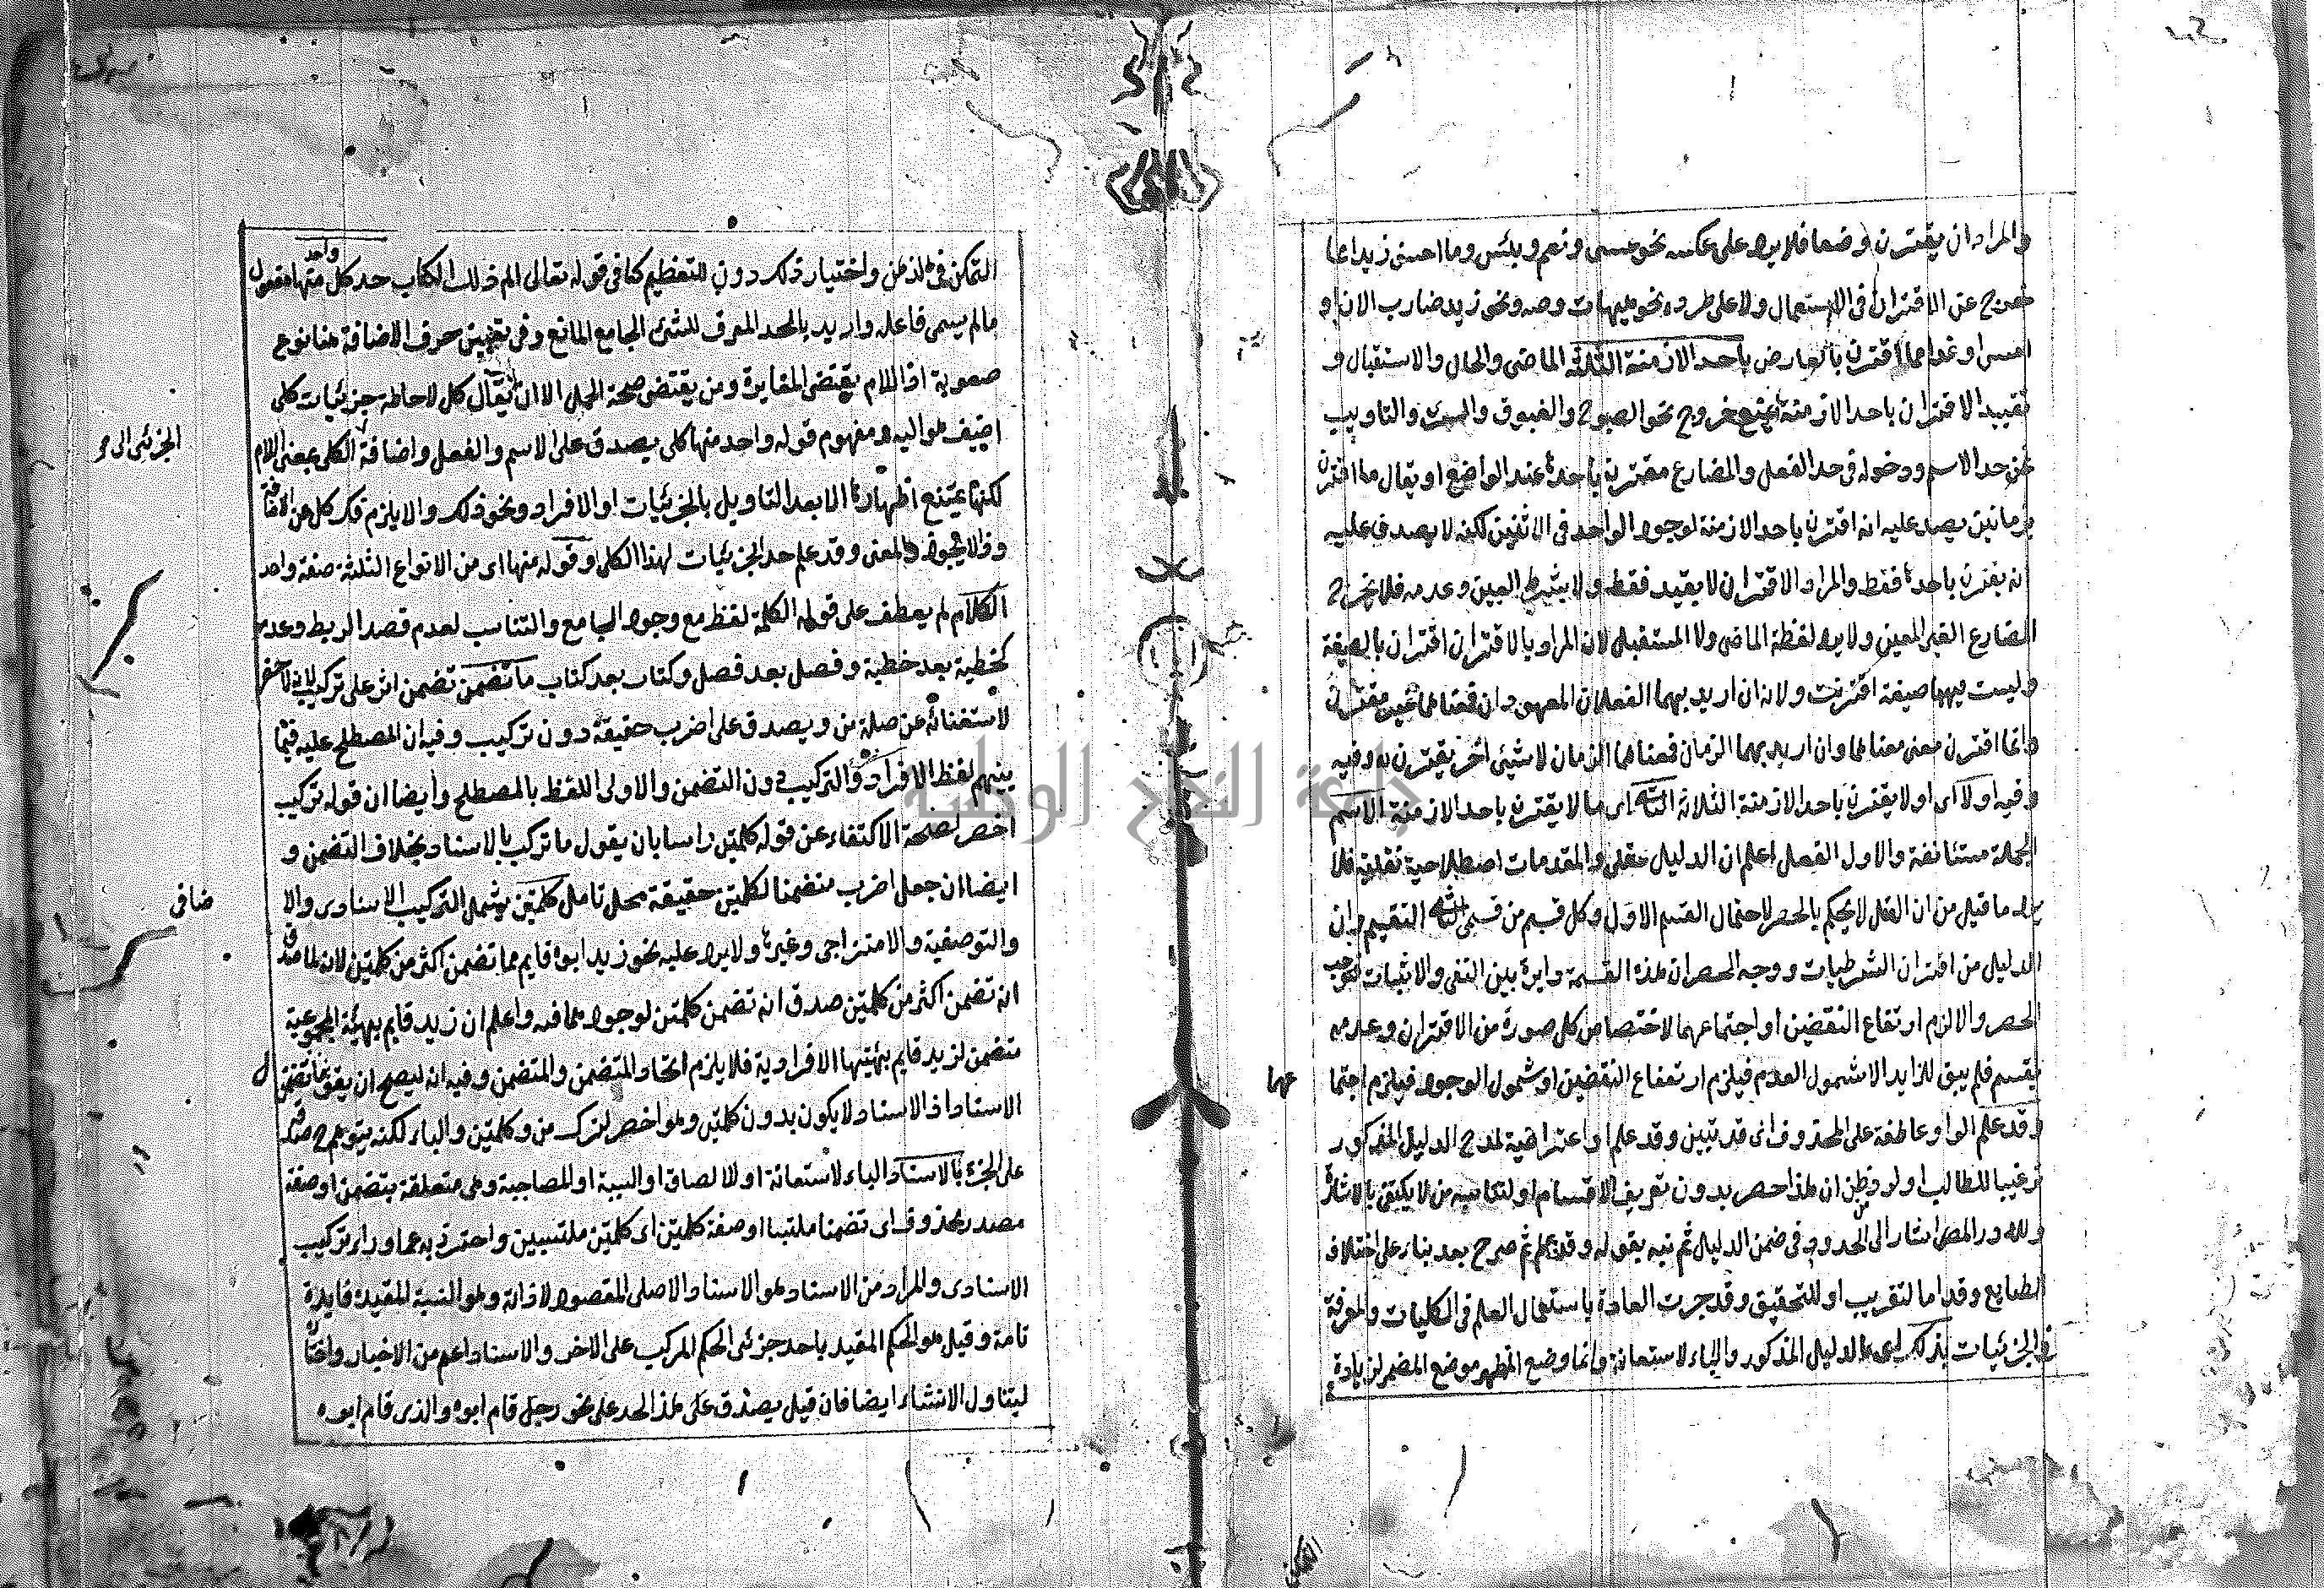 والمراد ان يقترن وضعا فلا يرد على عكسه نحو عسى ونعم وبئس وما احسن زيدا مما
خرج عن الاقتران فى الاستعمال ولا على طرده نحو هيهات وصه ونحو زيد ضارب الان او
امس او غدا مما اقترن بالعارض باحد الازمنة الثلثة الماضى والحال والاستقبال و
تقييد الاقتران باحد الازمنة يمنع خروج نحو الصبوح والغبوق والسرى والتاويب
عن حد الاسم ودخوله فى حد الفعل والمضارع مقترن باحدها عند الواضع او يقال ما اقترن
بزمانين يصد عليه انه اقترن باحد الازمنة لوجود الواحد فى الاثنين لكنه لا يصدق عليه
انه يقترن باحدها فقط والمراد الاقتران لا يقيد فقط ولا يشرط العين وعدمه فلا يخرج
المضارع الغير المعين ولا يرد لفظة الماضى ولا المستقبل لان المراد بالاقتران اقتران بالصيغة
وليست فيهما صيغة اقترنت ولانه ان اريد بهما الفعلان المعهودان فمعناهما غير مقترن
وانما اقترن معنى معناهما وان اريد بهما الزمان فمعناهما الزمان لا شيئ اخر يقترن به وفيه
وفيه اولا اى اولا يقترن باحد الازمنة الثلاثة الثانى اى ما لا يقترن باحد الازمنة الاسم
الجملة مستانفة والاول الفعل اعلم ان الدليل عقلى والمقدمات اصطلاحية نقلية فلا
يرد ما قيل من ان العقل لا يحكم بالحصر لاحتمال القسم الاول وكل قسم من قسمى الثانى التقسيم وان
الدليل من اقتران الشرطيات ووجه الحصر ان هذه القسمة دايرة بين النفى والاثبات فوجب
الحصر والا لزم ارتفاع النقضين او اجتماعهما لاختصاص كل صورة من الاقتران وعدمه
بقسم فلم يبق للزايد الا شمول العدم فيلزم ارتفاع النقضين او شمول الوجود فيلزم اجتما
عهما
وقد علم الواو عاطفة على المحذوف اى قد تبين وقد علم او اعتراضية لمدح الدليل المذكور
ترغيبا للطالب او لو فطن ان هذا حصر بدون تعريف الاقسام او لتكاسيه من لا يكتفى بالاشارة
ولله در المص اشار الى الحدود فى ضمن الدليل ثم نبه بقوله وقد علم ثم صرح بعد بناء على اختلاف
الطبايع وقد اما لتقريب او للتحقيق وقد جرت العادة باستعمال العلم فى الكليات والمعرفة
فى الجزئيات بذلك اى الدليل المذكور والباء لاستعانة وانما وضع المظهر موضع المضمر لزيادة
التمكن
التمكن فى الذهن واختيار ذلك دون للتعظيم كما فى قوله تعالى الم ذلك الكتاب حد كل واحد منها مفعول
مالم يسمى فاعله واريد بالحد المعرف للشئ الجامع المانع وفى تعيين حرف الاضافة هنا نوع
صعوبة اذ اللام يقتضى المغايرة ومن يقتضى صحة الحمل الا ان يقال كل لاحاطة جزئيات كلى
اضيف هو اليه ومفهوم قوله واحد منها كلى يصدق على الاسم والفعل واضافة الكلى بمعنى اللام
الجزئى الى هو
لكنها يمتنع اظهارها الا بعد التاويل بالجزئيات او الافراد ونحو ذلك والا يلزم فك كل عن الاضافة
وذا لا يجوز والمعنى وقد علم حد الجزئيات لهذا الكلى وقوله منها اى من الانواع الثلثة صفة واحد
الكلام لم يعطف على قوله الكلمة لفظ مع وجود الجامع والتناسب لعدم قصد الربط وعده
كخطبة بعد خطبة وفصل بعد فصل وكتاب بعد كتاب ما تضمن تضمن اثر على تركيب لانه اخصر
لاستغنائه عن صلة من ويصدق على اضرب حقيقة دون تركيب وفيه ان المصطلح عليه فيما
بينهم لفظ الافراد والتركيب دون التضمن والاولى اللفظ بالمصطلح وايضا ان قوله تركيب
اخصر لصحة الاكتفاء عن قوله كلمتين راسا بان يقول ما تركب بالاسناد بخلاف التضمن و
ايضا ان جعل اضرب متضمنا لكلمتين حقيقة محل تامل كلمتين يشمل التركيب الاسنادى والا
ضافى
والتوصفية والامتزاجى وغيرها ولا يرد عليه نحو زيد ابوه قايم مما تضمن اكثر من كلمتين لانه لما صدق
انه تضمن اكثر من كلمتين صدق انه تضمن كلمتين لوجودهما فيه واعلم ان زيد قايم بهيئة المجموعية
متضمن لزيد قايم بهيئتها الافرادية فلا يلزم اتحاد المتضمن والمتضمن وفيه انه ليصح ان يقول ما تضمن
الاسناد اذ الاسناد لا يكون بدون كلمتين وهو اخصر لترك من وكلمتين والباء لكنه يتوهم ح صدقه
على الجزء بالاسناد الباء لاستعانة او لالصاق او السببة او المصاحبة وهى متعلقة بتضمن او صفة
مصدر محذوف اى تضمنا ملتبسا او صفة كلمتين اى كلمتين ملتبسين واحترز به عما وراء تركيب
الاسنادى والمراد من الاسناد هو الاسناد الاصلى المقصود لاذاته وهو النسبة المقيدة فايدة
تامة وقيل هو الحكم المقيد باحد جزئى الحكم المركب على الاخر والاسناد اعم من الاخبار واختاره
ليتناول الانشاء ايضا فان قيل يصدق على هذا الحد على نحو رجل قام ابوه والذى قام ابوه
جامعة النجاح الوطنية